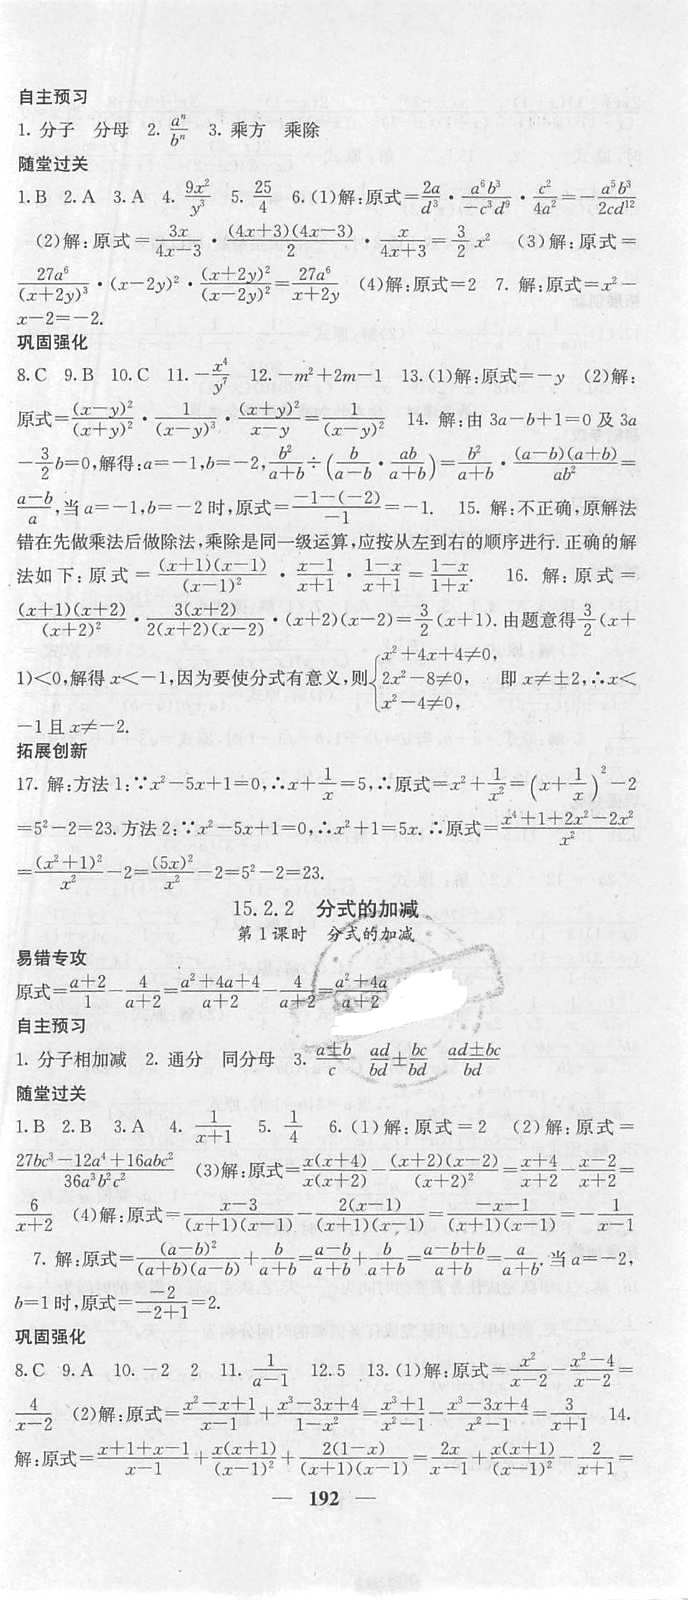 自主预习
1. 分子 分母 2. a^n/b^n 3. 乘方 乘除
随堂过关
1. B 2. A 3. A 4. 9x²/y³ 5. 25/4 6. (1)解:原式=2a/d³·a⁶b³/(-c³d⁹)·c²/4a²=-a⁵b³/2cd¹²
(2)解:原式=3x/(4x-3)·(4x+3)(4x-3)/2·x/(4x+3)=3/2x² (3)解:原式=
27a⁶/(x+2y)³·(x-2y)²·(x+2y)²/(x-2y)²=27a⁶/(x+2y) (4)解:原式=2 7. 解:原式=x²-
x-2=-2.
巩固强化
8. C 9. B 10. C 11. -x⁴/y⁷ 12. -m²+2m-1 13. (1)解:原式=-y (2)解:
原式=(x-y)²/(x+y)²·1/(x-y)³·(x+y)²/(x-y)=1/(x-y)² 14. 解:由 3a-b+1=0 及 3a
-3/2b=0,解得:a=-1,b=-2,b²/(a+b)÷(b/(a-b)·ab/(a+b))=b²/(a+b)·(a-b)(a+b)/ab²=
(a-b)/a,当 a=-1,b=-2 时,原式=(-1-(-2))/(-1)=-1. 15. 解:不正确,原解法
错在先做乘法后做除法,乘除是同一级运算,应按从左到右的顺序进行.正确的解
法如下:原式=(x+1)(x-1)/(x-1)²·(x-1)/(x+1)·(1-x)/(x+1)=(1-x)/(1+x). 16. 解:原式=
(x+1)(x+2)/(x+2)²·3(x+2)/2(x+2)(x-2)·(x+2)(x-2)=3/2(x+1).由题意得3/2(x+
1)<0,解得 x<-1,因为要使分式有意义,则{x²+4x+4≠0, 2x²-8≠0, x²-4≠0, 即 x≠±2,∴x<
-1 且 x≠-2.
拓展创新
17. 解:方法 1:∵x²-5x+1=0,∴x+1/x=5,∴原式=x²+1/x²=(x+1/x)²-2
=5²-2=23.方法 2:∵x²-5x+1=0,∴x²+1=5x.∴原式=(x⁴+1+2x²-2x²)/x²
=(x²+1)²/x²-2=(5x)²/x²-2=5²-2=23.
15.2.2 分式的加减
第 1 课时 分式的加减
易错专攻
原式=(a+2)/1-4/(a+2)=(a²+4a+4)/(a+2)-4/(a+2)=(a²+4a)/(a+2)
自主预习
1. 分子相加减 2. 通分 同分母 3. (a±b)/c ad/bd±bc/bd (ad±bc)/bd
随堂过关
1. B 2. B 3. A 4. 1/(x+1) 5. 1/4 6. (1)解:原式=2 (2)解:原式=
(27bc³-12a⁴+16abc²)/36a³b²c² (3)解:原式=x(x+4)/x(x+2)-(x+2)(x-2)/(x+2)²=(x+4)/(x+2)-(x-2)/(x+2)=
6/(x+2) (4)解:原式=(x-3)/(x+1)(x-1)-2(x-1)/(x+1)(x-1)=(-x-1)/(x+1)(x-1)=-1/(x-1)
7. 解:原式=(a-b)²/(a+b)(a-b)+b/(a+b)=(a-b)/(a+b)+b/(a+b)=(a-b+b)/(a+b)=a/(a+b).当 a=-2,
b=1 时,原式=-2/(-2+1)=2.
巩固强化
8. C 9. A 10. -2 2 11. 1/(a-1) 12. 5 13. (1)解:原式=x²/(x-2)-(x²-4)/(x-2)=
4/(x-2) (2)解:原式=(x²-x+1)/(x-1)+(x³-3x+4)/(1-x²)=(x³+1)/(x²-1)-(x³-3x+4)/(x²-1)=3/(x+1) 14.
解:原式=(x+1+x-1)/(x-1)+x(x+1)/(x-1)²+2(1-x)/(x+1)(x-1)=2x/(x-1)+x(x+1)/(x-1)²-2/(x+1)=
— 192 —